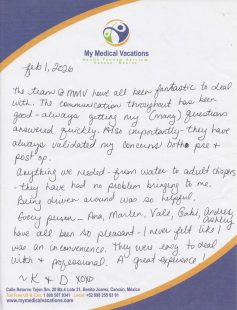 My Medical Vacations
Health Tourism Services
Cancun, Mexico
feb 1, 2026
The team @ MMV have all been fantastic to deal
with. The communication throughout has been
good - always getting my (many) questions
answered quickly. Also importantly - they have
always validated my concerns both pre +
post op.
Anything we needed - from water to adult diapers
- they have had no problem bringing to me.
Being driven around was so helpful.
Every person - Ana, Marlen, Vale, Gabi, Andres, Ashley
have all been so pleasant - I never felt like I
was an inconvenience. They were easy to deal
with + professional. A great experience!
~ K & D xoxo
Calle Retorno Tejon Sm. 20 Mz.4 Lote 31, Benito Juarez, Cancún, México
Toll Free US & Can: 1 888 587 0341 Local: +52 998 255 63 91
www.mymedicalvacations.com